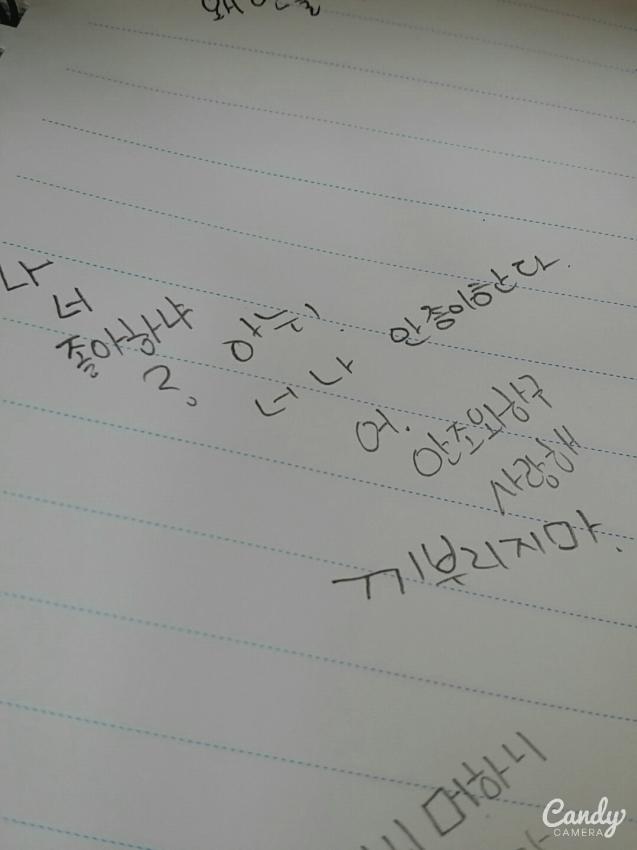 나 너
좋아하냐
?
아니!
너 나
안 종이한다.
어.
안조와하구
사랑해
끼부리지마.
머하니
Candy
CAMERA